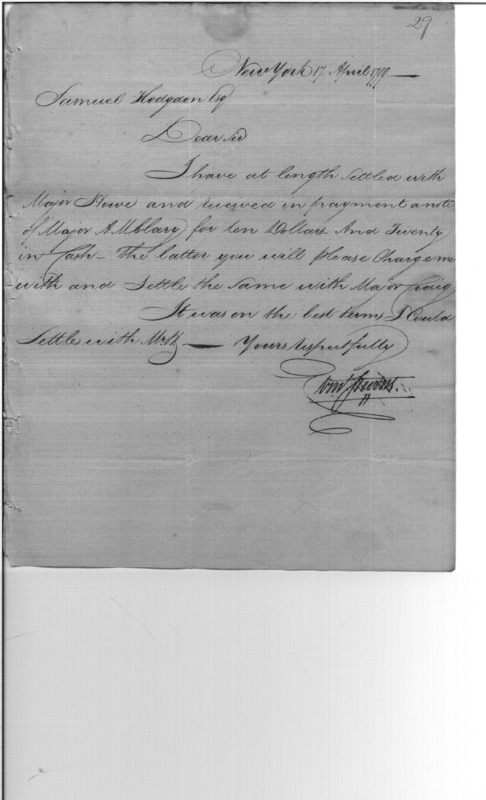 29
New York 17 April 1799
Samuel Hodgdon Esq
Dear Sir
I have at length settled with
Major Howe and received in payment a note
of Major for ten Dollars And Twenty
in Cash - the latter you will please Charge me
with and Settle the Same with Major Craig
It was on the best terms I Could
Settle with Mr H — Yours respectfully